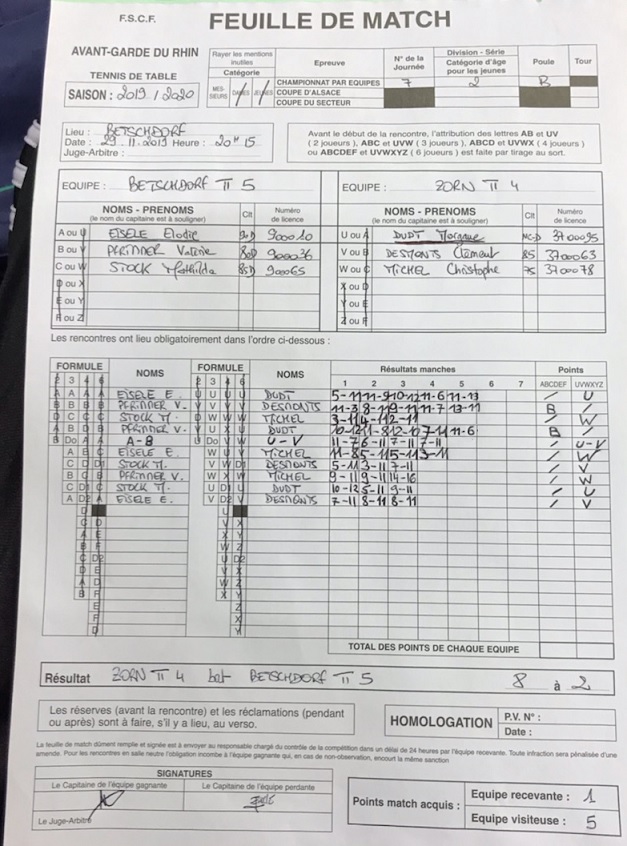 F.S.C.F. FEUILLE DE MATCH
AVANT-GARDE DU RHIN
TENNIS DE TABLE
SAISON : 2019 / 2020
Rayer les mentions inutiles
Catégorie
MES-SIEURS DAMES JEUNES
Epreuve N° de la Journée Division - Série Catégorie d'âge pour les jeunes Poule Tour
CHAMPIONNAT PAR EQUIPES 7 2 B
COUPE D'ALSACE
COUPE DU SECTEUR
Lieu : BETSCHDORF
Date : 29.11.2019 Heure : 20H15
Juge-Arbitre :
Avant le début de la rencontre, l'attribution des lettres AB et UV
( 2 joueurs ), ABC et UVW ( 3 joueurs ), ABCD et UVWX ( 4 joueurs )
ou ABCDEF et UVWXYZ ( 6 joueurs ) est faite par tirage au sort.
EQUIPE : BETSCHDORF TT 5 EQUIPE : ZORN TT 4
NOMS - PRENOMS (le nom du capitaine est à souligner) Clt Numéro de licence NOMS - PRENOMS (le nom du capitaine est à souligner) Clt Numéro de licence
A ou U EISELE Elodie 900010 U ou A DUDT Morgane 3700095
B ou V PFRIMMER Valerie 900036 V ou B DESMONTS Clément 85 3700063
C ou W STOCK Mathilda 85D 90065 W ou C MICHEL Christophe 75 3700078
D ou X X ou D
E ou Y Y ou E
F ou Z Z ou F
Les rencontres ont lieu obligatoirement dans l'ordre ci-dessous :
FORMULE NOMS FORMULE NOMS Résultats manches Points
2 3 4 6 2 3 4 6 1 2 3 4 5 6 7 ABCDEF UVWXYZ
A EISELE E. U DUDT 5-11 11-9 10-12 11-6 11-13 / U
B PFRIMMER V. V DESMONTS 11-3 8-11 9-11 11-7 13-11 B /
C STOCK M. W MICHEL 3-11 4-11 2-11 / W
B PFRIMMER V. U DUDT 10-12 11-8 12-10 7-11 11-6 B /
Do A-B Do U-V 11-7 6-11 7-11 7-11 / U-V
A EISELE E. W MICHEL 11-8 5-11 5-11 3-11 / W
C STOCK M. V DESMONTS 5-11 3-11 7-11 / V
B PFRIMMER V. W MICHEL 9-11 9-11 14-16 / W
C STOCK M. U DUDT 10-12 5-11 9-11 / U
A EISELE E. V DESMONTS 7-11 8-11 8-11 / V
TOTAL DES POINTS DE CHAQUE EQUIPE
Résultat ZORN TT 4 bat BETSCHDORF TT 5 8 à 2
Les réserves (avant la rencontre) et les réclamations (pendant
ou après) sont à faire, s'il y a lieu, au verso.
HOMOLOGATION P.V. N° :
Date :
La feuille de match dûment remplie et signée est à envoyer au responsable chargé du contrôle de la compétition dans un délai de 24 heures par l'équipe recevante. Toute infraction sera pénalisée d'une
amende. Pour les rencontres en salle neutre l'obligation incombe à l'équipe gagnante qui, en cas de non-observation, encourt la même sanction
SIGNATURES
Le Capitaine de l'équipe gagnante Le Capitaine de l'équipe perdante
Le Juge-Arbitre
Points match acquis : Equipe recevante : 1
Equipe visiteuse : 5